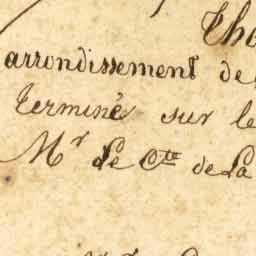 Tho
arrondissement de
terminé sur le
Mr Le Cte de La